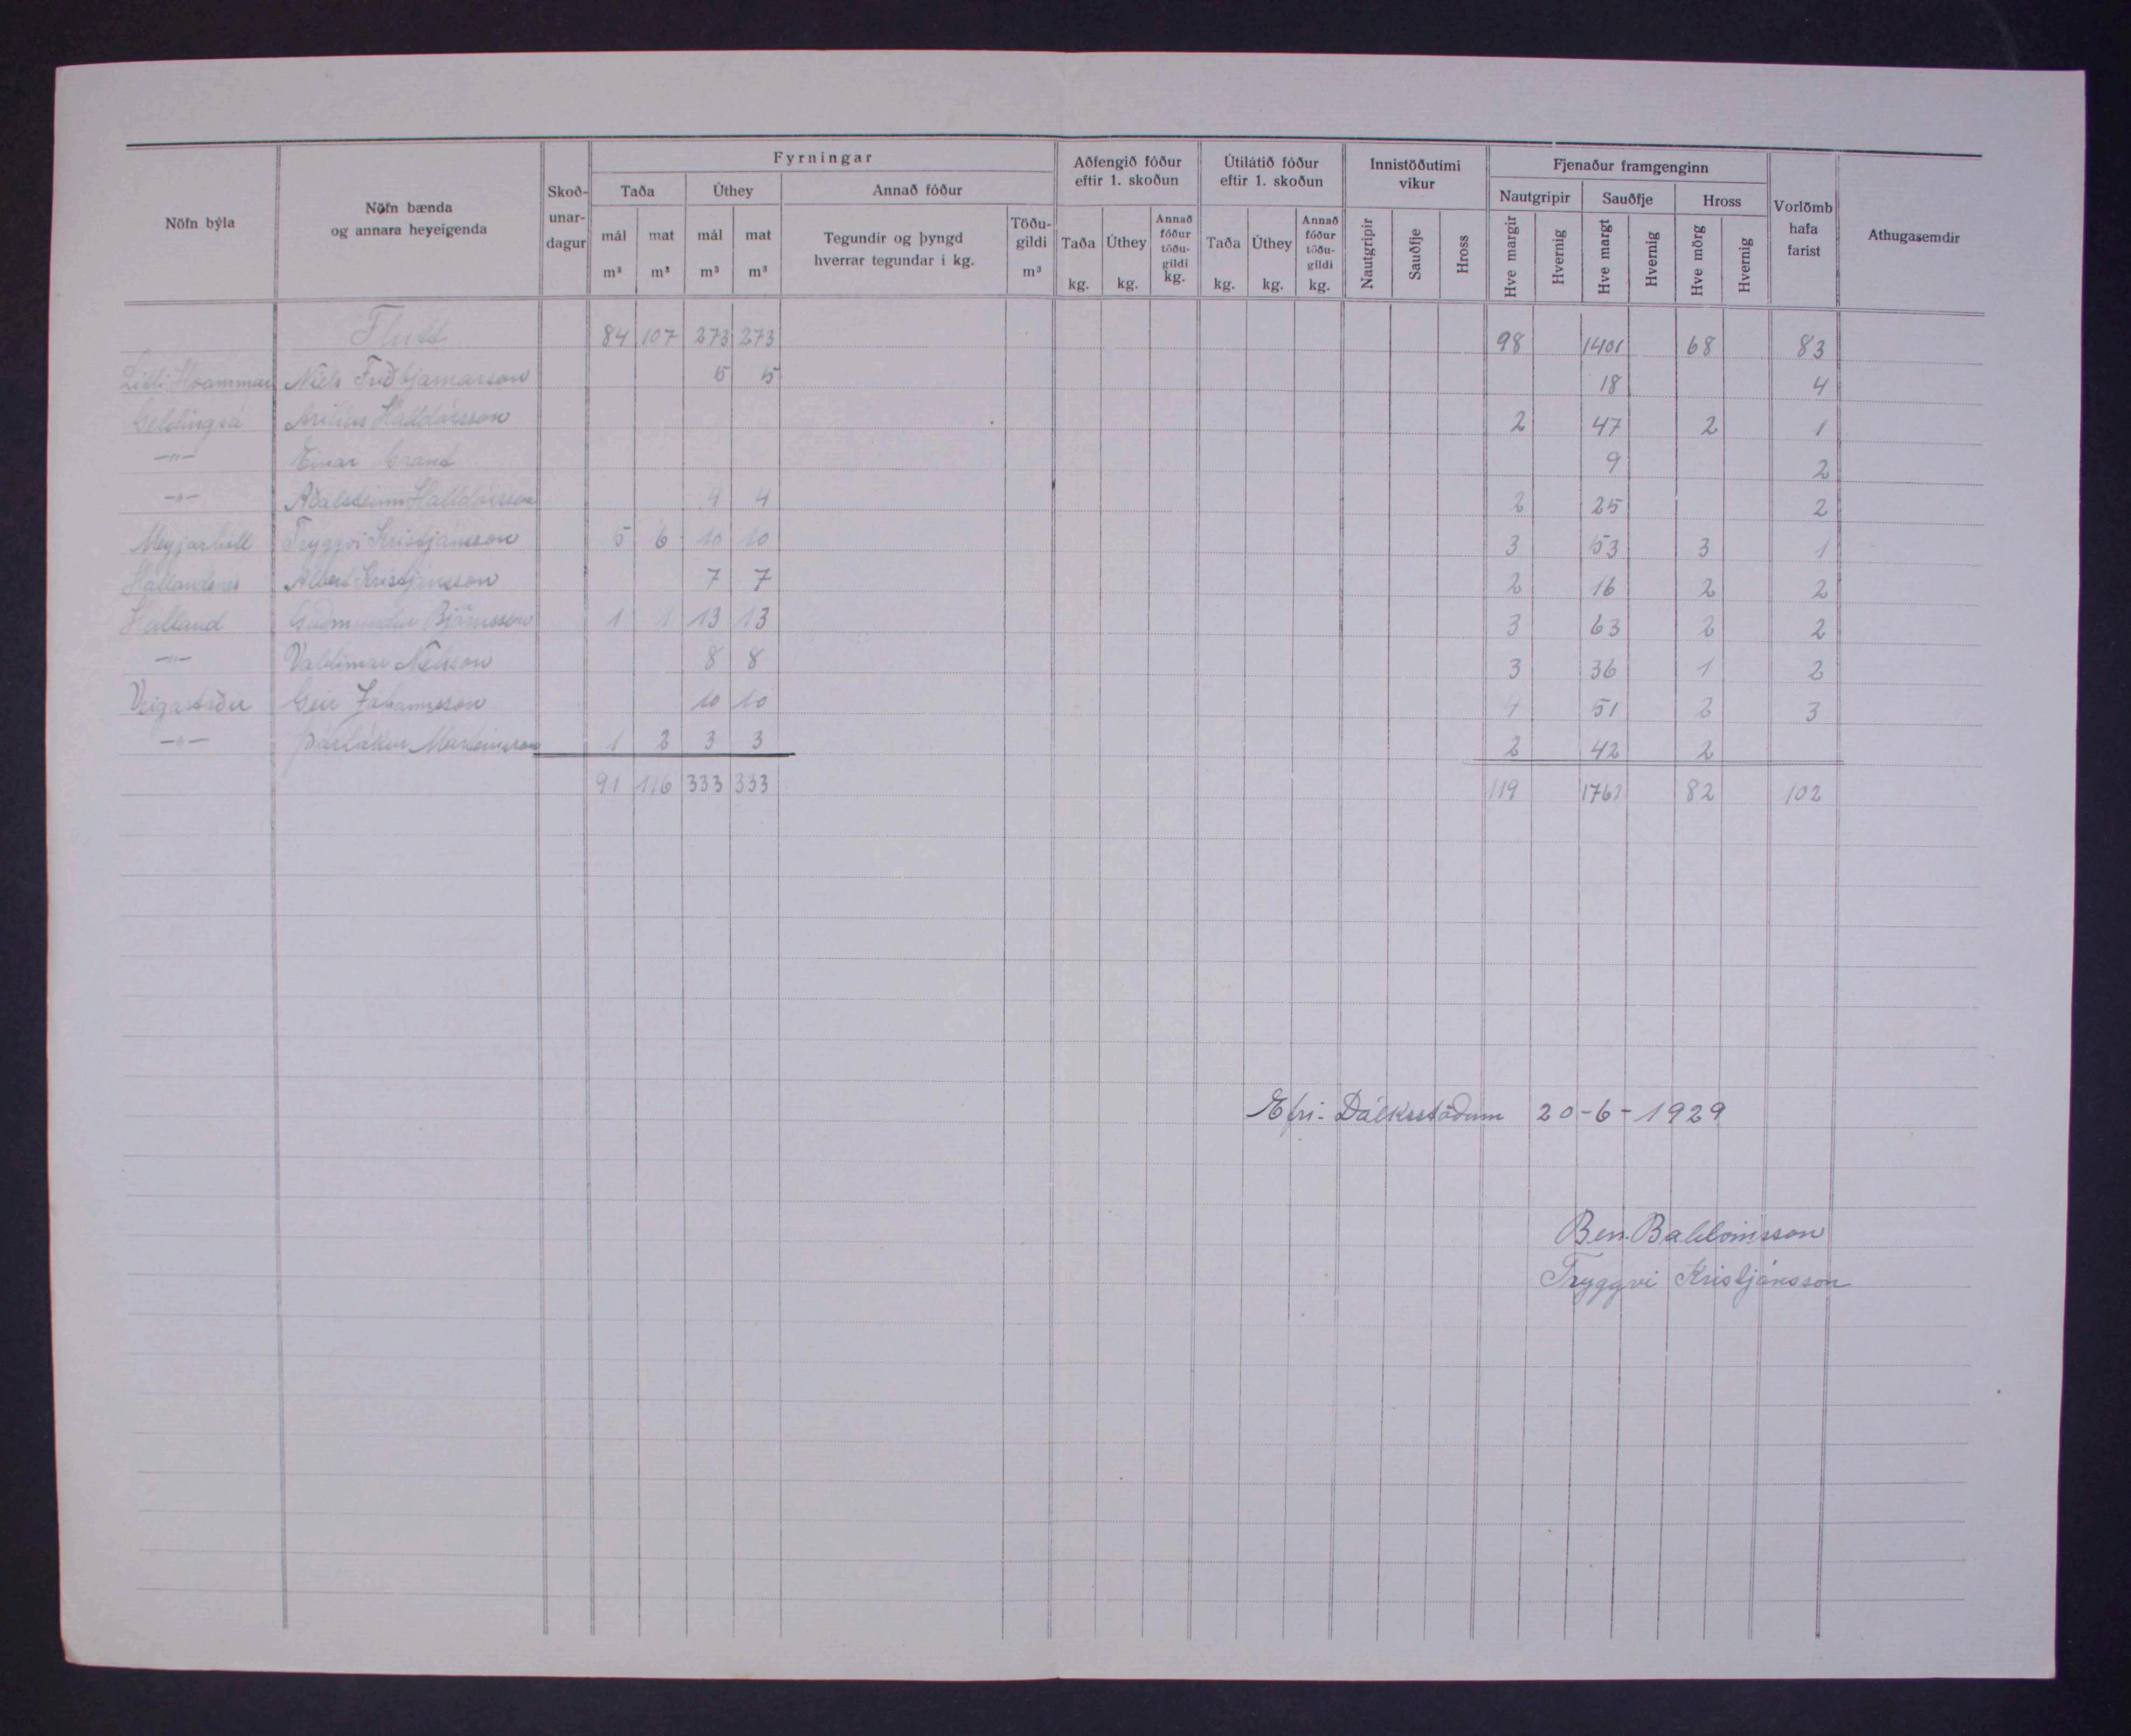 Nöfn býla
Nöfn bænda
og annara heyeigenda
Skoð-
unar-
dagur
Fyrningar
Taða
Úthey
Annað fóður
mál m³
mat m³
mál m³
mat m³
Tegundir og þyngd
hverrar tegundar í kg.
Töðu-
gildi
m³
Aðfengið fóður
eftir 1. skoðun
Taða kg.
Úthey kg.
Annað
fóður
töðu-
gildi
kg.
Útilátið fóður
eftir 1. skoðun
Taða kg.
Úthey kg.
Annað
fóður
töðu-
gildi
kg.
Innistöðutími
vikur
Nautgripir
Sauðfje
Hross
Fjenaður framgenginn
Nautgripir
Sauðfje
Hross
Hve margir
Hvernig
Hve margt
Hvernig
Hve mörg
Hvernig
Vorlömb
hafa
farist
Athugasemdir
Flutt 84 107 273 273 98 1401 68 83
Litli Hvammur Níels Friðbjarnarson 5 5 18 4
Geldingsá Halldórsson 2 47 2 1
—"— Einar 9 2
—"— Aðalsteinn Halldórsson 4 4 2 25 2
Meyjarhóll Tryggvi Kristjánsson 5 6 10 10 3 53 3 1
Hallandsnes Albert Kristjánsson 7 7 2 16 2 2
Halland Guðmundur Björnsson 1 1 13 13 3 63 2 2
—"— Valdimar Nílsson 8 8 3 36 1 2
Veigastaðir Geir Jóhannsson 10 10 4 51 2 3
—"— Þorlákur Marteinsson 1 2 3 3 2 42 2
91 116 333 333 119 1762 82 102
Efri-Dálksstöðum 20-6-1929
Ben. Baldvinsson
Tryggvi Kristjánsson